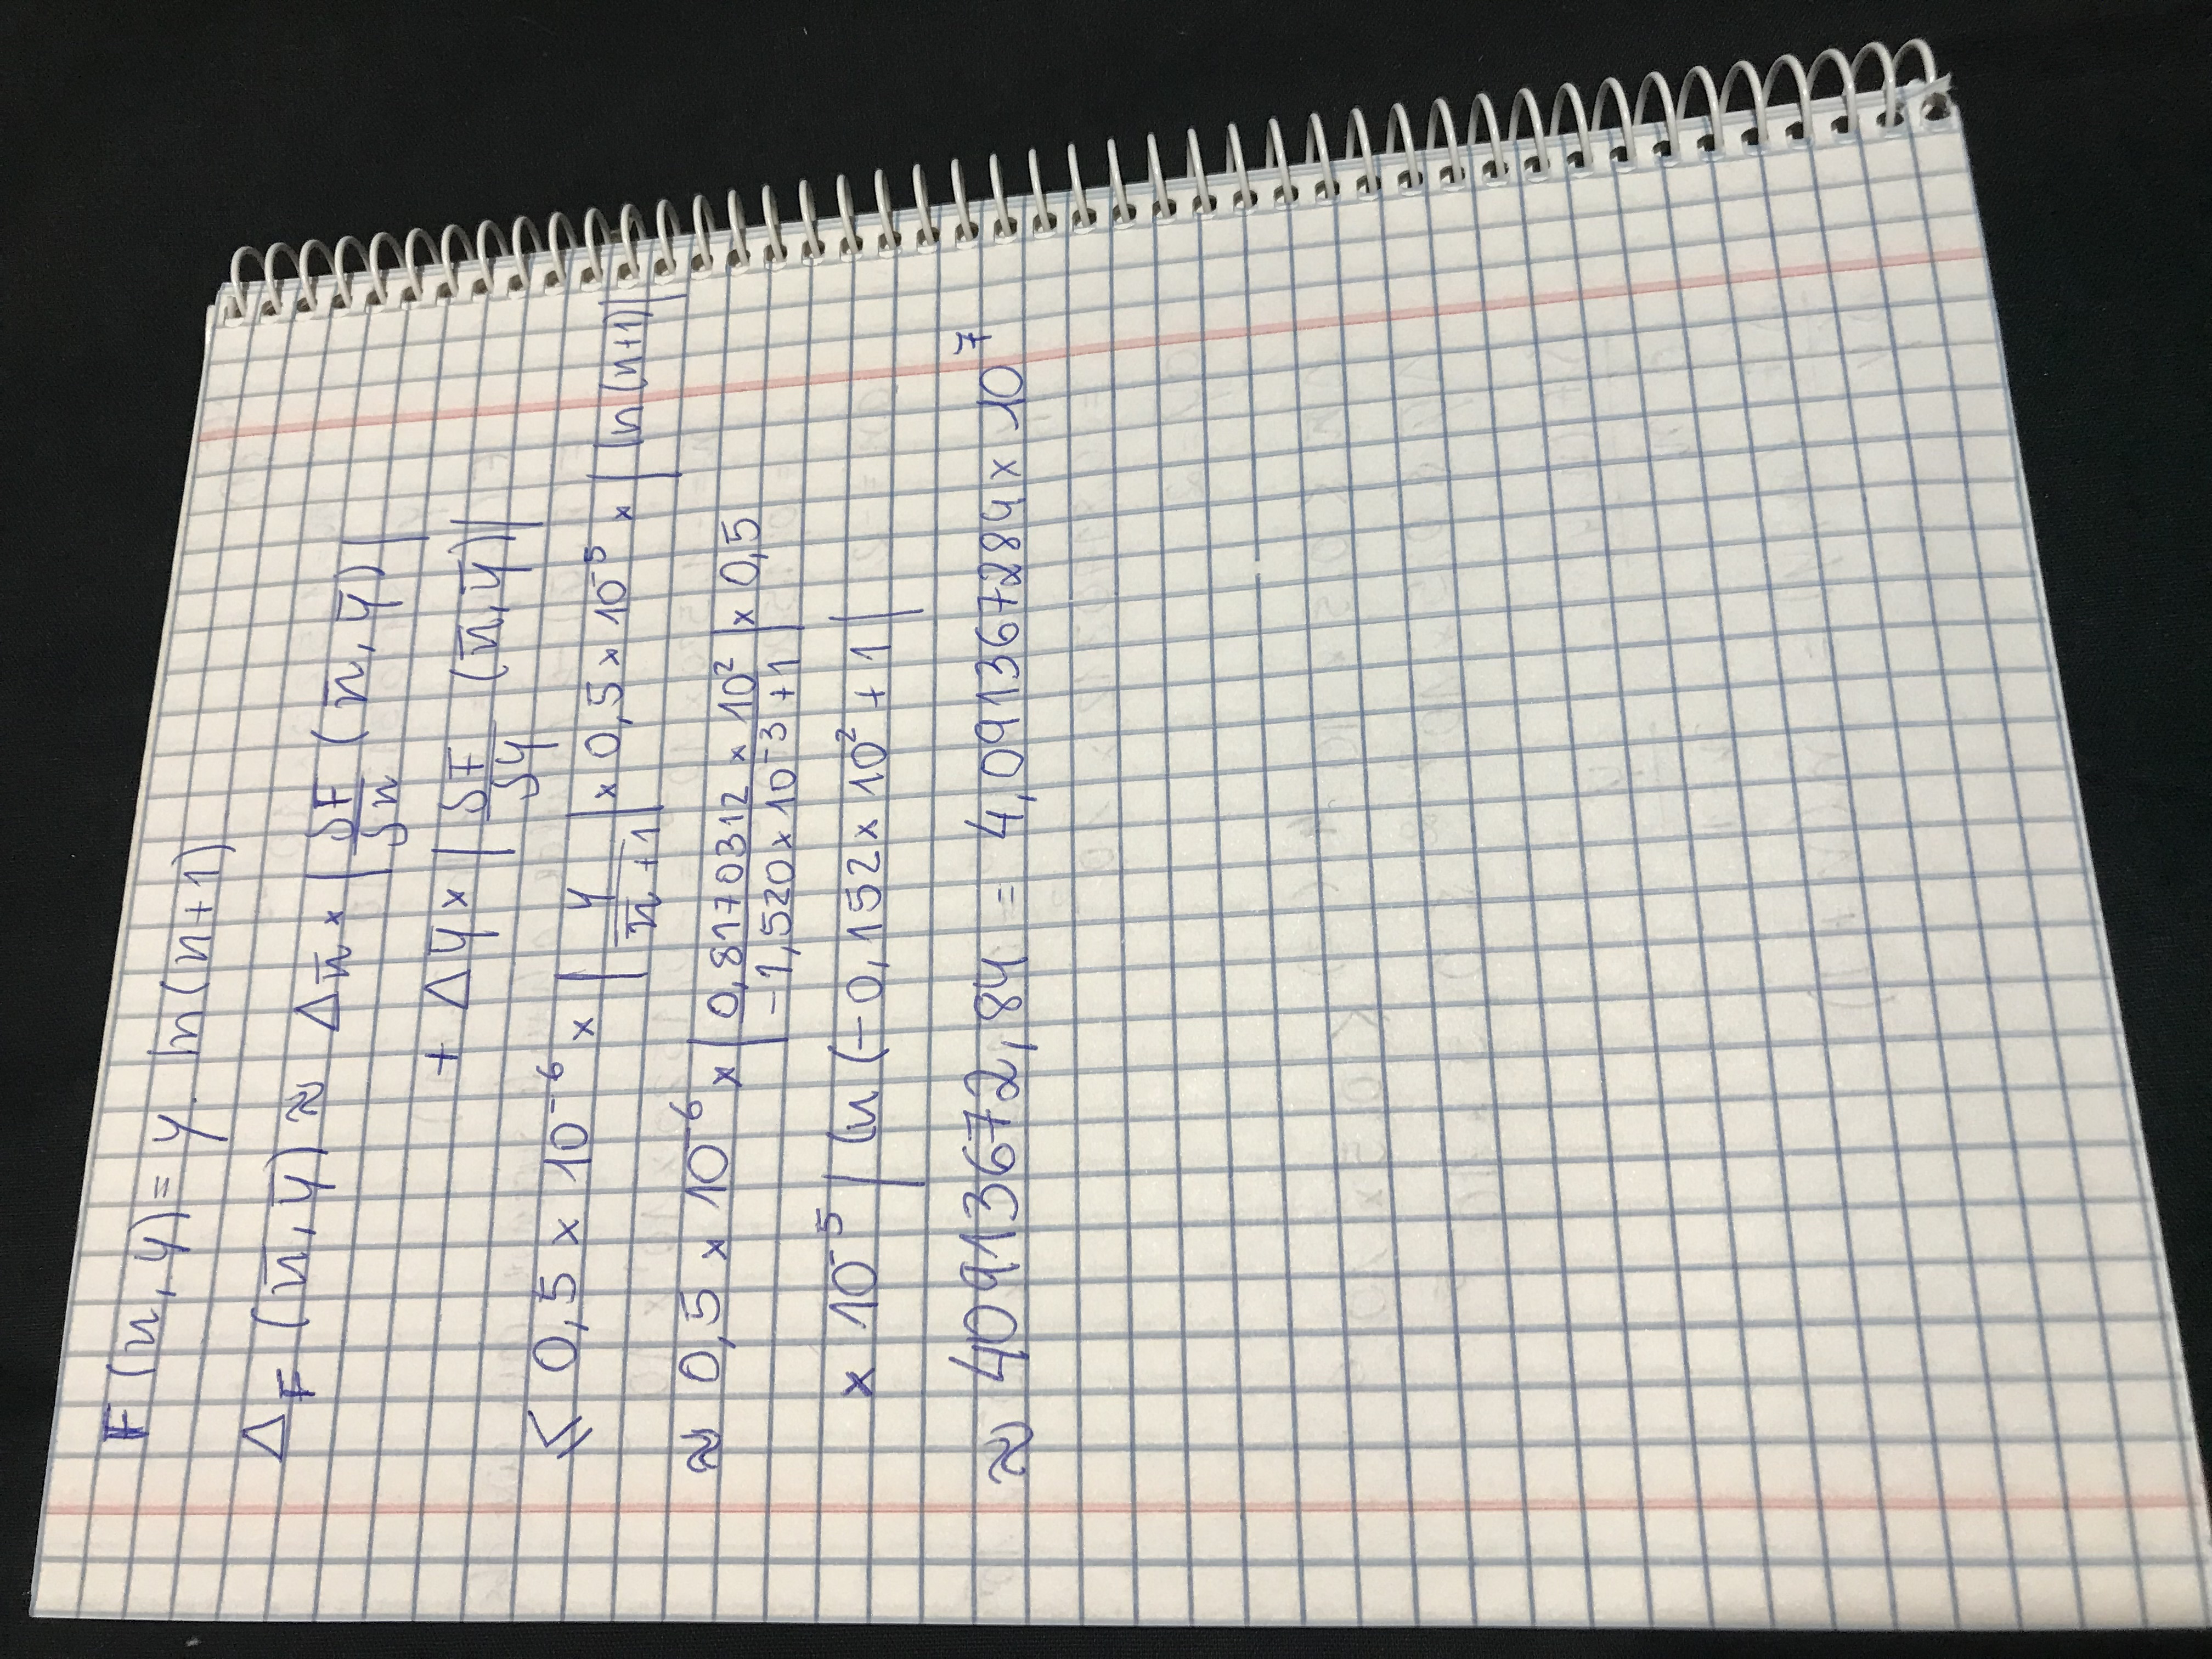 F(x, y) = y. ln(x+1)
Δ_F (x̄, ȳ) ≈ Δx̄ × | δF/δx (x̄, ȳ) |
+ Δȳ × | δF/δy (x̄, ȳ) |
⩽ 0,5 × 10^-6 × | y/(x̄+1) | × 0,5 × 10^-5 × | ln(x+1) |
≈ 0,5 × 10^-6 × | 0,8170312 × 10^2 / -1,520 × 10^-3 + 1 | × 0,5
× 10^-5 | ln (-0,152 × 10^2 + 1 |
≈ 40913672,84 = 4,091367284 × 10^7